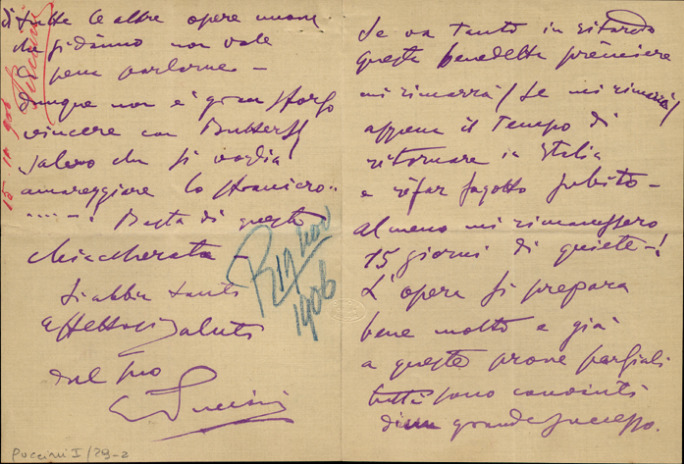 di tutte le altre opere nuove
che si danno non vale
pena parlarne –
Dunque non è gran sforzo
vincere con Butterfly
salvo che si voglia
amareggiare lo straniero..
....–! Basta di questa
chiaccherata –
Si abbia tanti
affettuosi saluti
dal suo
G Puccini
15 11 906
Puccini
R 19 nov
1906
Puccini I/29-2
Se va tanto in ritardo
questa benedetta première
mi rimarrà (se mi rimarrà)
appena il tempo di
ritornare in Italia
e rifar fagotto subito –
almeno mi rimanessero
15 giorni di quiete –!
L'opera si prepara
bene molto e già
a queste prove parziali
tutti sono convinti
di un grande successo.